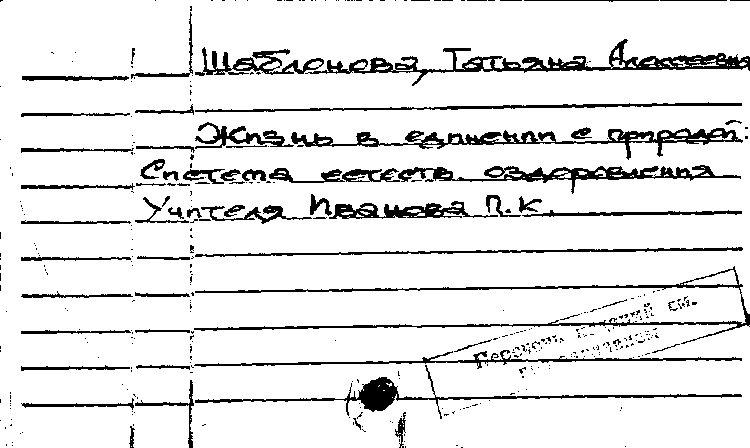 Шаблонова, Татьяна Алексеевна
Жизнь в единении с природой:
Система естеств. оздоровления
Учителя Иванова П.К.
Перечень изданий см.